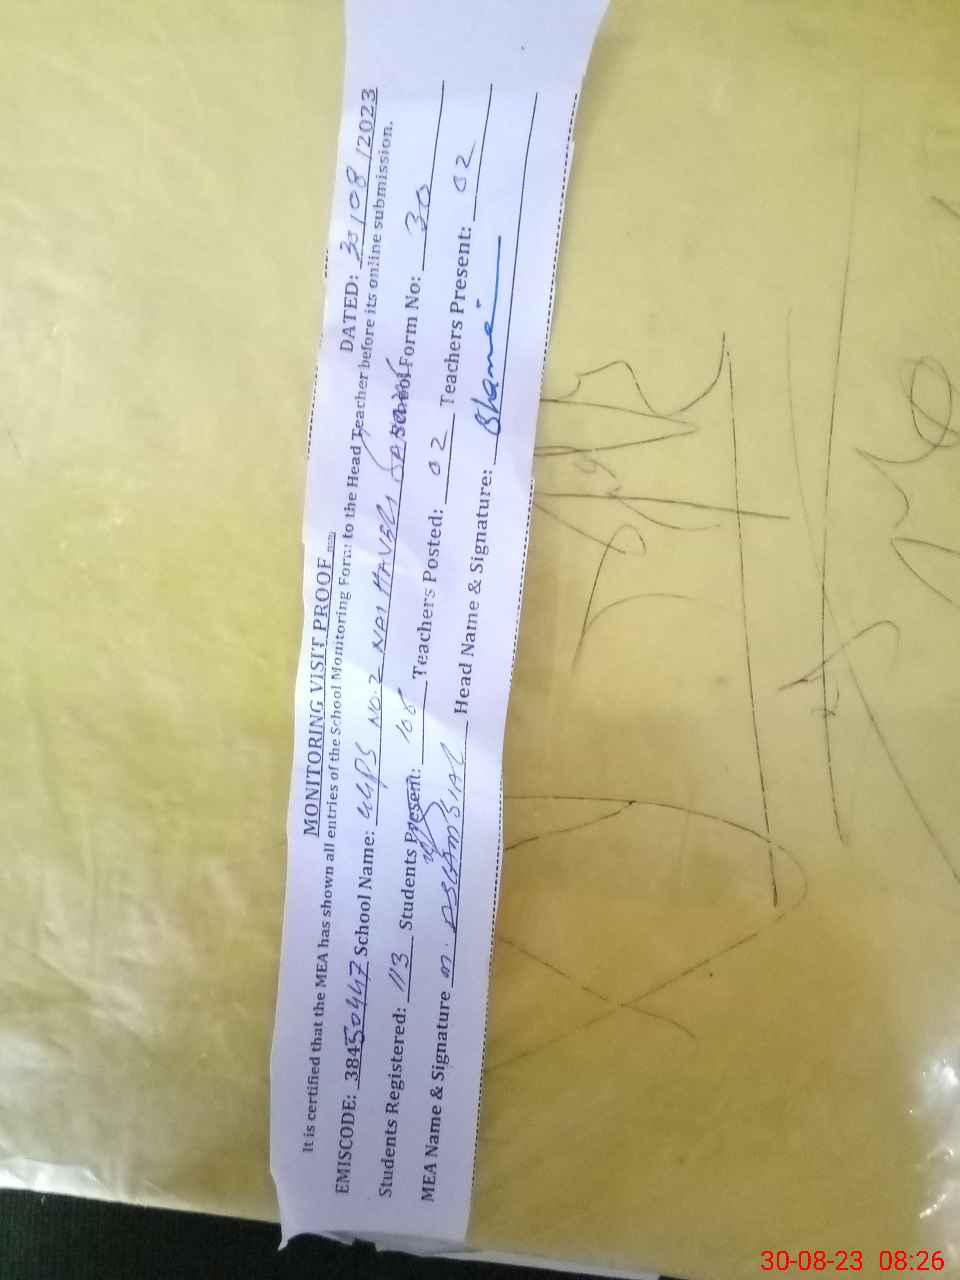 MONITORING VISIT PROOF
DATED: 30/08/2023
It is certified that the MEA has shown all entries of the School Monitoring Form to the Head Teacher before its online submission.
EMISCODE: 38450447 School Name: GGPS NO.2 NAI HAVELI Form No: 30
Students Registered: 113 Students Present: 105 Teachers Posted: 02 Teachers Present: 02
MEA Name & Signature Head Name & Signature:
30-08-23 08:26